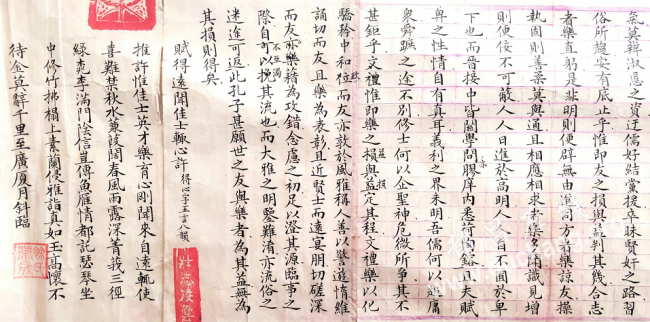 氣莫辨淑慝之資迂儒好點黨援卒昧賢奸之路習
俗所趨安有底止乎惟即友之損與益判其幾合志
者樂直躬是非明則便辟無由進同方者樂諒友操
執固則善柔莫與通且相應相求朴樂多聞識見增
則便佞不可蔽人人日進於高明人人自不囿於卑
下也而晉接中皆關學問膠庠內悉荷陶鎔且夫賦
畀之性情自有真耳義利之界未明吾儒何以迥厲
眾舜蹠之途不別修士何以企聖神危微所爭其不
甚鉅乎文禮惟即樂之損與益定其程文禮樂以化
驕矜中和位而友亦敦於風雅稱人善以警遊惰維
誦切而友且樂為表彰且近賢士而遠宴朋切磋深
而友亦樂藉為攻錯念慮之初足以澄其源臨事之
際自可以挽其流也而大雅之明鑒難淆亦流俗之
迷途可返此孔子甚願世之友與樂者為其益無為
其損則得矣
賦得遠聞佳士輒心許 得心字五言八韻
推許惟佳士英才樂育心剛聞來自遠輒使
喜難禁秋水蒹葭闊春風雨露深菁莪三徑
綠桃李滿門陰信豈傳魚雁情都託瑟琴坐
中修竹拂榻上素蘭侵雅詣真如玉高懷不
待金莫辭千里至廣廈月斜臨